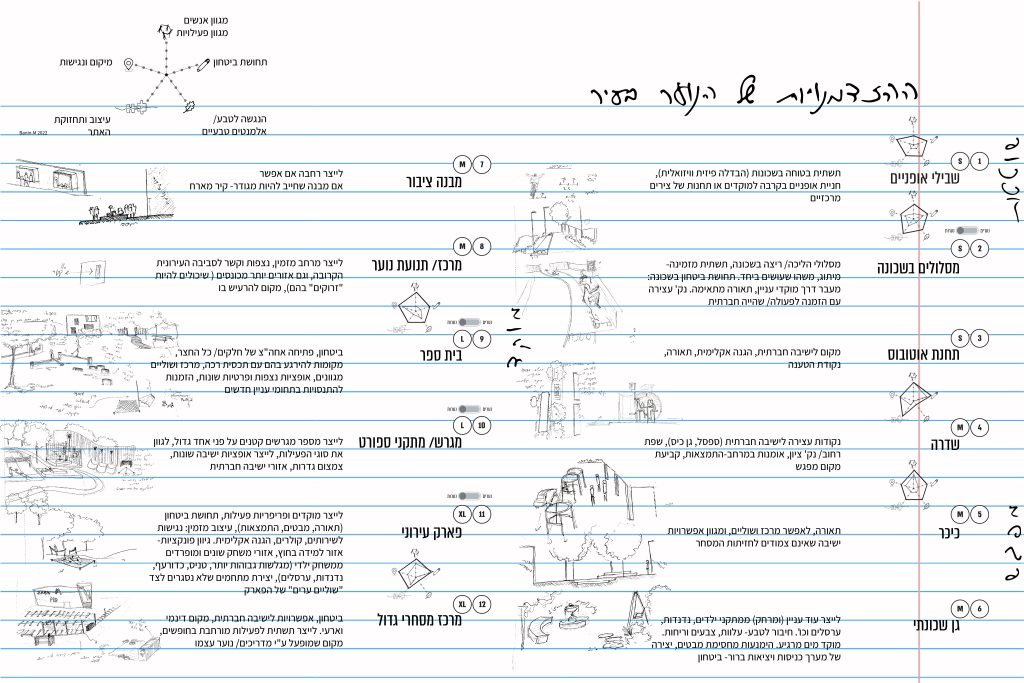 מגוון אנשים
מגוון פעילויות
תחושת ביטחון
מיקום ונגישות
הנגשה לטבע/
אלמנטים טבעיים
עיצוב ותחזוקת
האתר
Banin.M 2022
ההזדמנויות של הנוער בעיר
S 1
שבילי אופניים
תשתית בטוחה בשכונות (הבדלה פיזית וויזואלית),
חניית אופניים בקרבה למוקדים או תחנות של צירים
מרכזיים
S 2
מסלולים בשכונה
מסלולי הליכה/ ריצה בשכונה, תשתית מזמינה-
מיתוג, משהו שעושים ביחד. תחושת ביטחון בשכונה:
מעבר דרך מוקדי עניין, תאורה מתאימה. נק' עצירה
עם הזמנה לפעולה/ שהייה חברתית
S 3
תחנת אוטובוס
מקום לישיבה חברתית, הגנה אקלימית, תאורה,
נקודת הטענה
M 4
שדרה
נקודות עצירה לישיבה חברתית (ספסל, גן כיס), שפת
רחוב/ נק' ציון, אומנות במרחב-התמצאות, קביעת
מקום מפגש
M 5
כיכר
תאורה, לאפשר מרכז ושוליים, ומגוון אפשרויות
ישיבה שאינם צמודים לחזיתות המסחר
M 6
גן שכונתי
לייצר עוד עניין (ומרחק) ממתקני ילדים, נדנדות,
ערסלים וכו'. חיבור לטבע- עלוות, צבעים וריחות.
מוקד מים מרגיע. הימנעות מחסימת מבטים, יצירה
של מערך כניסות ויציאות ברור- ביטחון
M 7
מבנה ציבור
לייצר רחבה אם אפשר
אם מבנה שחייב להיות מגודר- קיר מארח
M 8
מרכז/ תנועת נוער
לייצר מרחב מזמין, נצפות וקשר לסביבה העירונית
הקרובה, וגם אזורים יותר מכונסים ( שיכולים להיות
"זרוקים" בהם), מקום להרעיש בו
L 9
בית ספר
ביטחון, פתיחה אחה"צ של חלקים/ כל החצר,
מקומות להירגע בהם עם תכסית רכה, מרכז ושוליים
מגוונים, אופציות נצפות ופרטיות שונות, הזמנות
להתנסויות בתחומי עניין חדשים
L 10
מגרש/ מתקני ספורט
לייצר מספר מגרשים קטנים על פני אחד גדול, לגוון
את סוגי הפעילות, לייצר אופציות ישיבה שונות,
צמצום גדרות, אזורי ישיבה חברתית
XL 11
פארק עירוני
לייצר מוקדים ופריפריות פעילות, תחושת ביטחון
(תאורה, מבטים, התמצאות), עיצוב מזמין: נגישות
לשירותים, קולרים, הגנה אקלימית. גיוון פונקציות-
אזור למידה בחוץ, אזורי משחק שונים ומופרדים
ממשחק ילדי (מגלשות גבוהות יותר, טניס, כדורעף,
נדנדות, ערסלים), יצירת מתחמים שלא נסגרים לצד
"שוליים ערים" של הפארק
XL 12
מרכז מסחרי גדול
ביטחון, אפשרויות לישיבה חברתית, מקום דינמי
וארעי. לייצר תשתית לפעילות מורחבת בחופשים,
מקום שמופעל ע"י מדריכים/ נוער עצמו